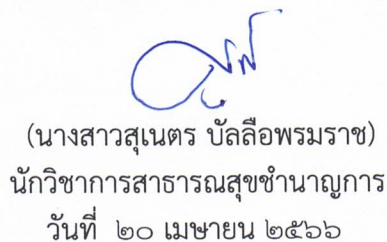 (นางสาวสุเนตร บัลลือพรมราช)
นักวิชาการสาธารณสุขชำนาญการ
วันที่ ๒๐ เมษายน ๒๕๖๖